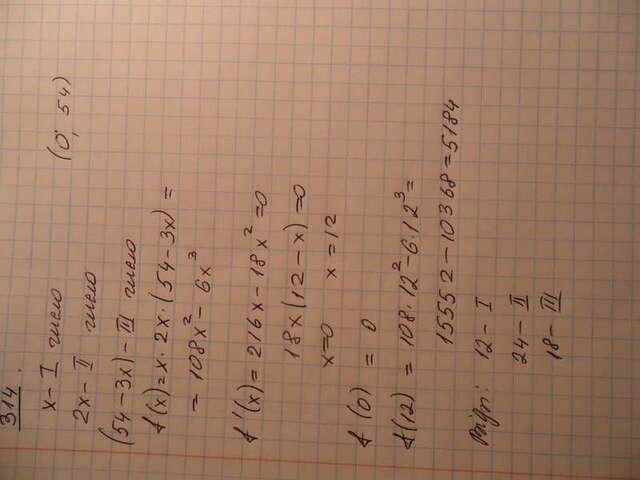 314.
x - I число (0; 54)
2x - II число
(54 - 3x) - III число
f(x) = x · 2x · (54 - 3x) =
= 108x² - 6x³
f'(x) = 216x - 18x² = 0
18x(12 - x) = 0
x=0 x = 12
f(0) = 0
f(12) = 108 · 12² - 6 · 12³ =
15552 - 10368 = 5184
12 - I
24 - II
18 - III